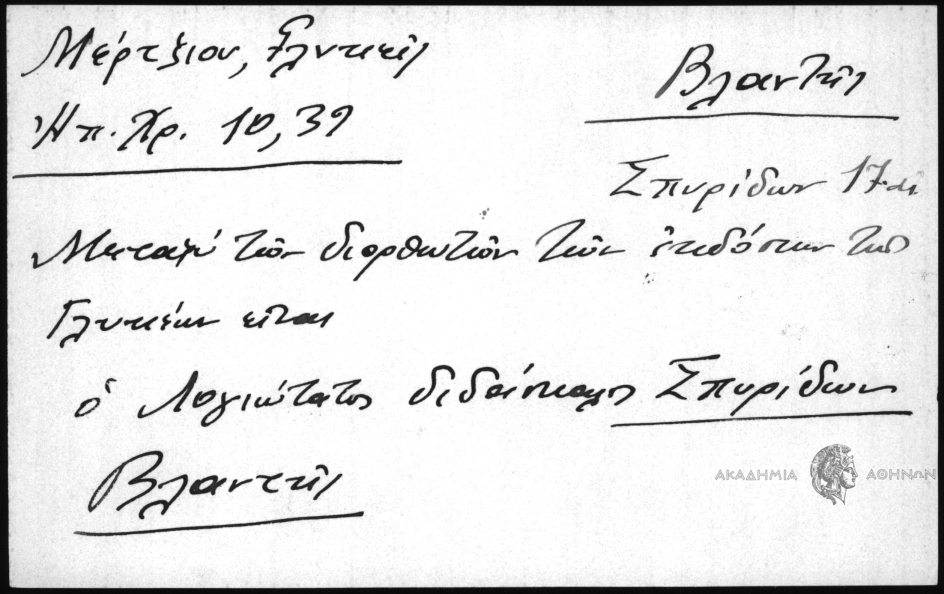 Μέρτζιου, Γλυκεῖς
Ἠπ. Χρ. 10, 39
Βλαντῆς
Σπυρίδων 17-αι
Μεταξὺ τῶν διορθωτῶν τῶν ἐκδόσεων τῶν
Γλυκέων εἶναι
ὁ λογιώτατος διδάσκαλος Σπυρίδων
Βλαντῆς
ΑΚΑΔΗΜΙΑ ΑΘΗΝΩΝ